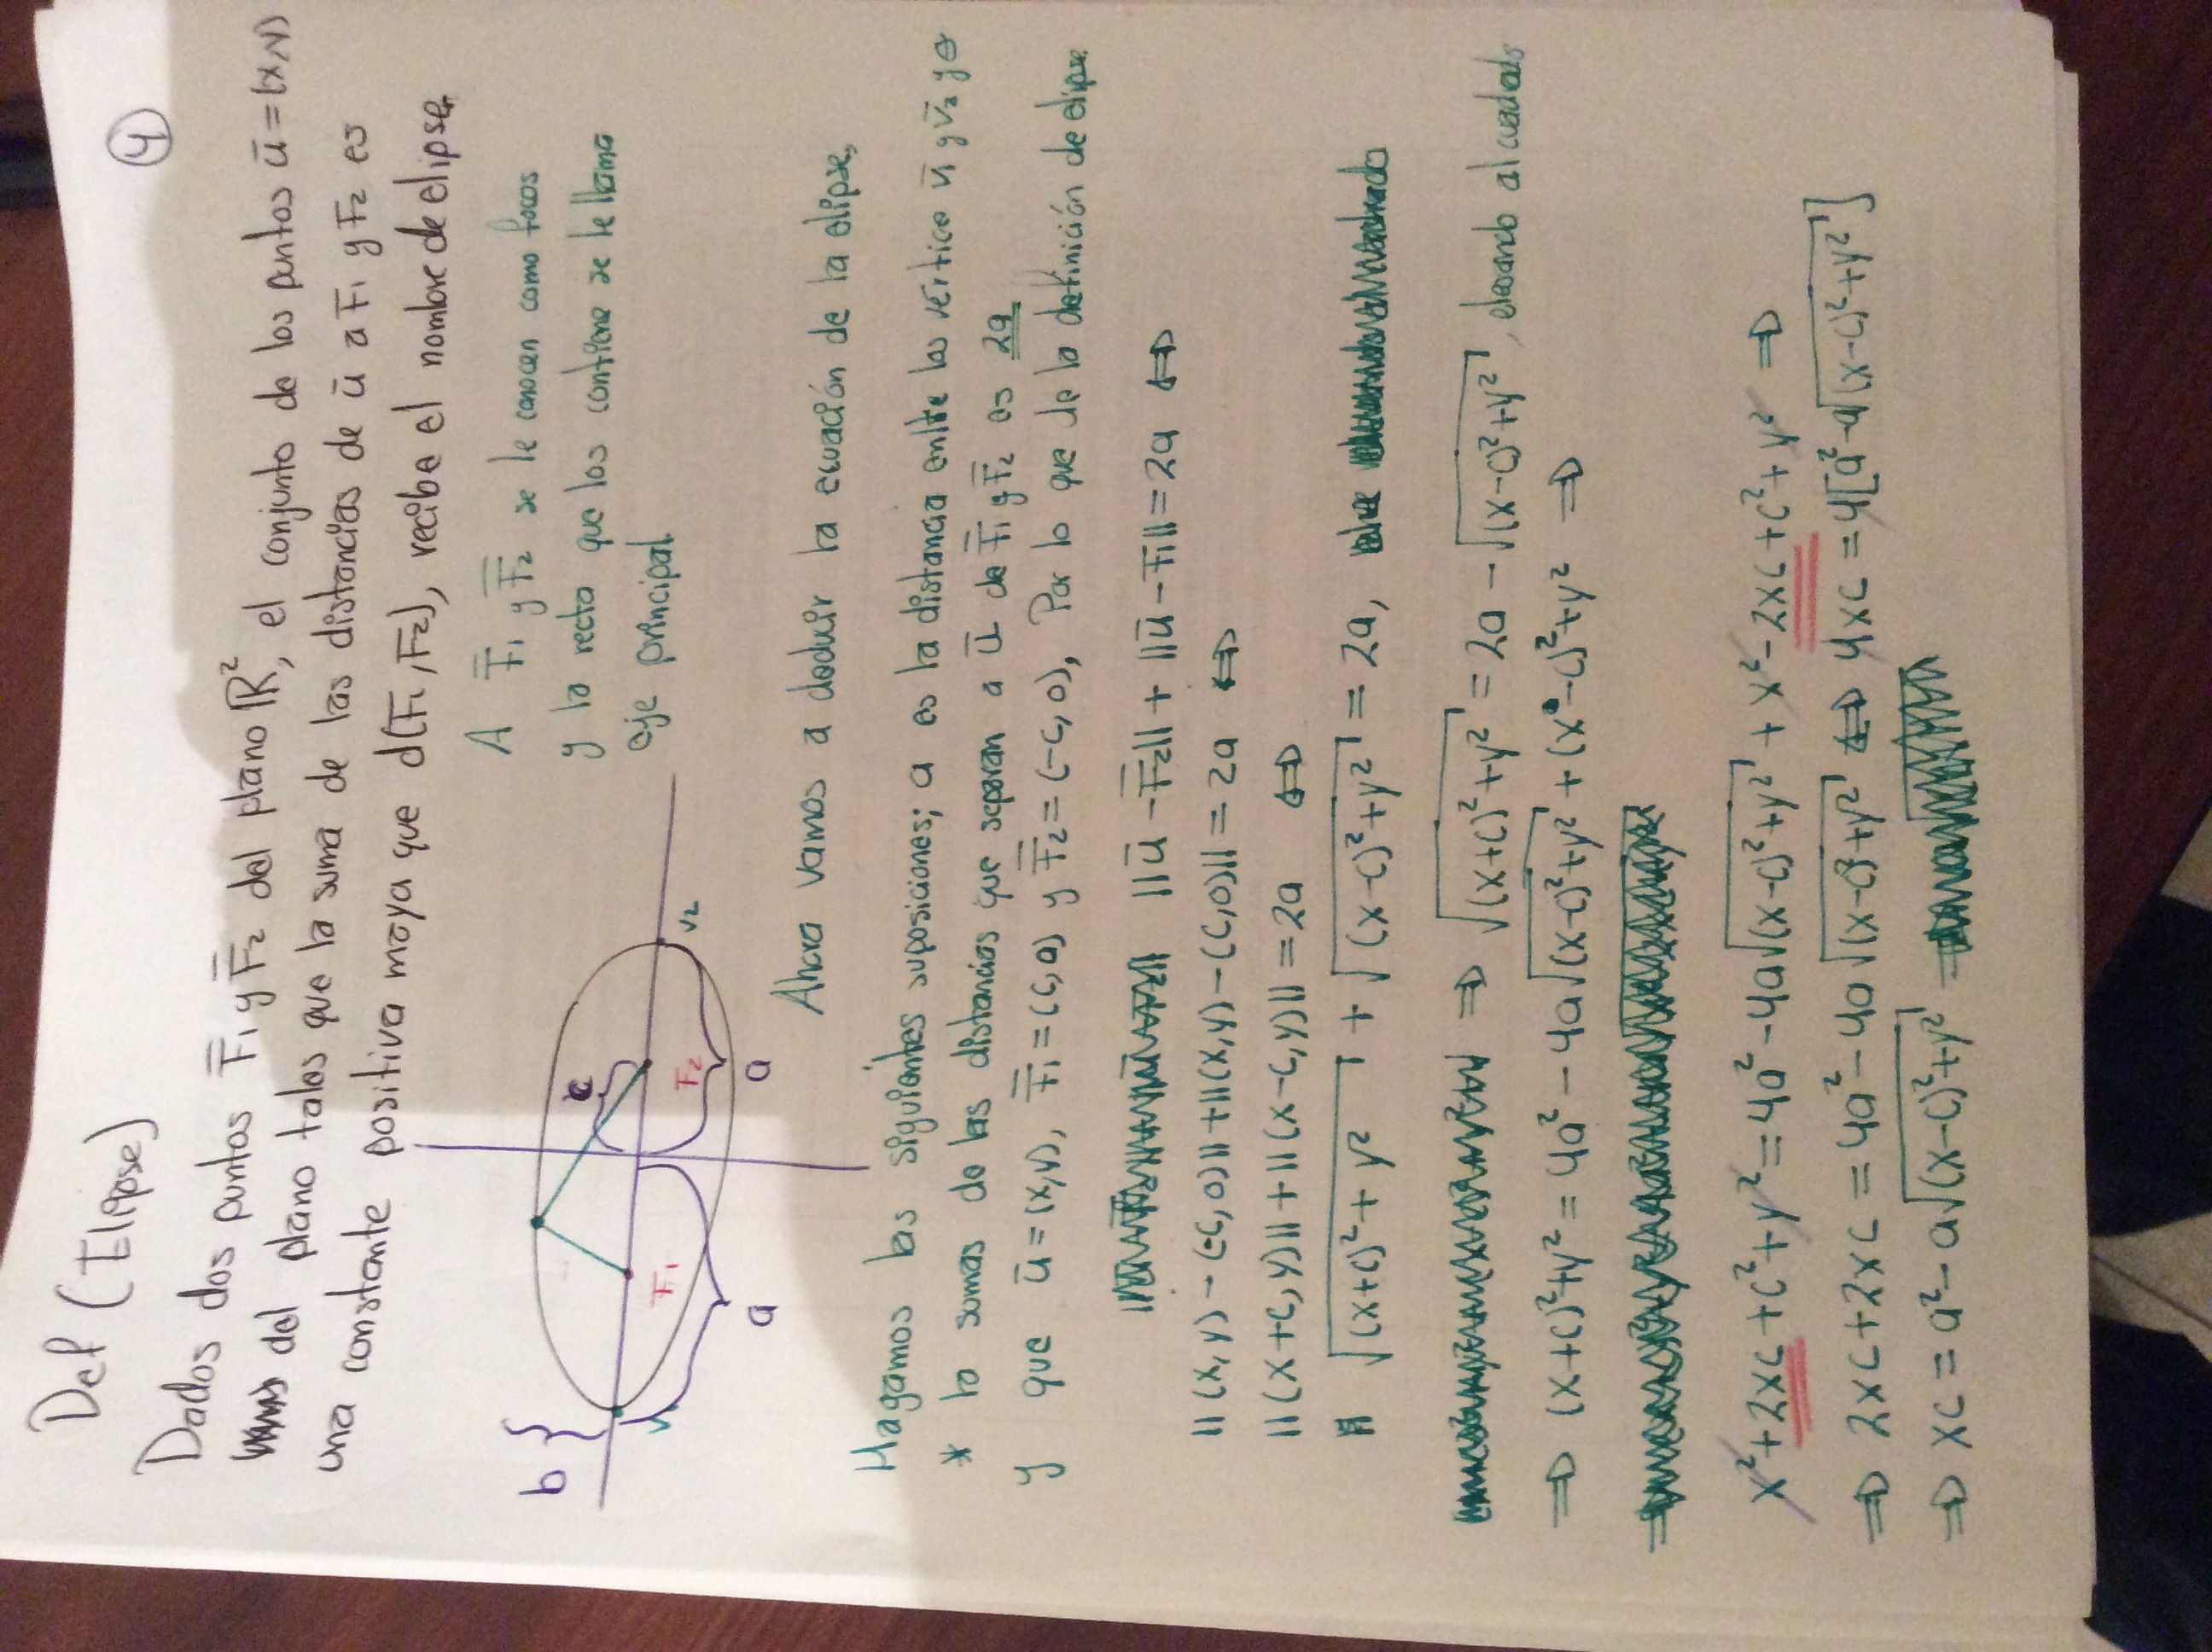 4
Def (Elipse)
Dados dos puntos F̅₁ y F̅₂ del plano ℝ², el conjunto de los puntos ū = (x,y)
del plano tales que la suma de las distancias de ū a F̅₁ y F̅₂ es
una constante positiva maya que d(F̅₁,F̅₂), recibe el nombre de elipse.
A F̅₁ y F̅₂ se le conocen como focos
y la recta que los contiene se le llama
eje principal.
b
c
F₁
F₂
V₂
a
a
Ahora vamos a deducir la ecuación de la elipse,
Hagamos las siguientes suposiciones; a es la distancia entre los vértice v̅₁ y v̅₂ y θ
* la sumas de las distancias que separan a ū de F̅₁ y F̅₂ es 2a
y que ū = (x,y), F̅₁ = (c,0) y F̅₂ = (-c,0), Por lo que de la definición de elipse
||ū - F̅₂|| + ||ū - F̅₁|| = 2a ⇔
||(x,y) - (-c,0)|| + ||(x,y) - (c,0)|| = 2a ⇔
||(x+c,y)|| + ||(x-c,y)|| = 2a ⇔
√(x+c)²+y² + √(x-c)²+y² = 2a,
⇒ √(x+c)²+y² = 2a - √(x-c)²+y², elevando al cuadrado
⇒ (x+c)²+y² = 4a² - 4a√(x-c)²+y² + (x-c)²+y² ⇒
x²+2xc+c²+y² = 4a² - 4a√(x-c)²+y² + x²-2xc+c²+y² ⇒
⇒ 2xc+2xc = 4a² - 4a√(x-c)²+y² ⇔ 4xc = 4[a²-a√(x-c)²+y²]
⇒ xc = a² - a√(x-c)²+y²